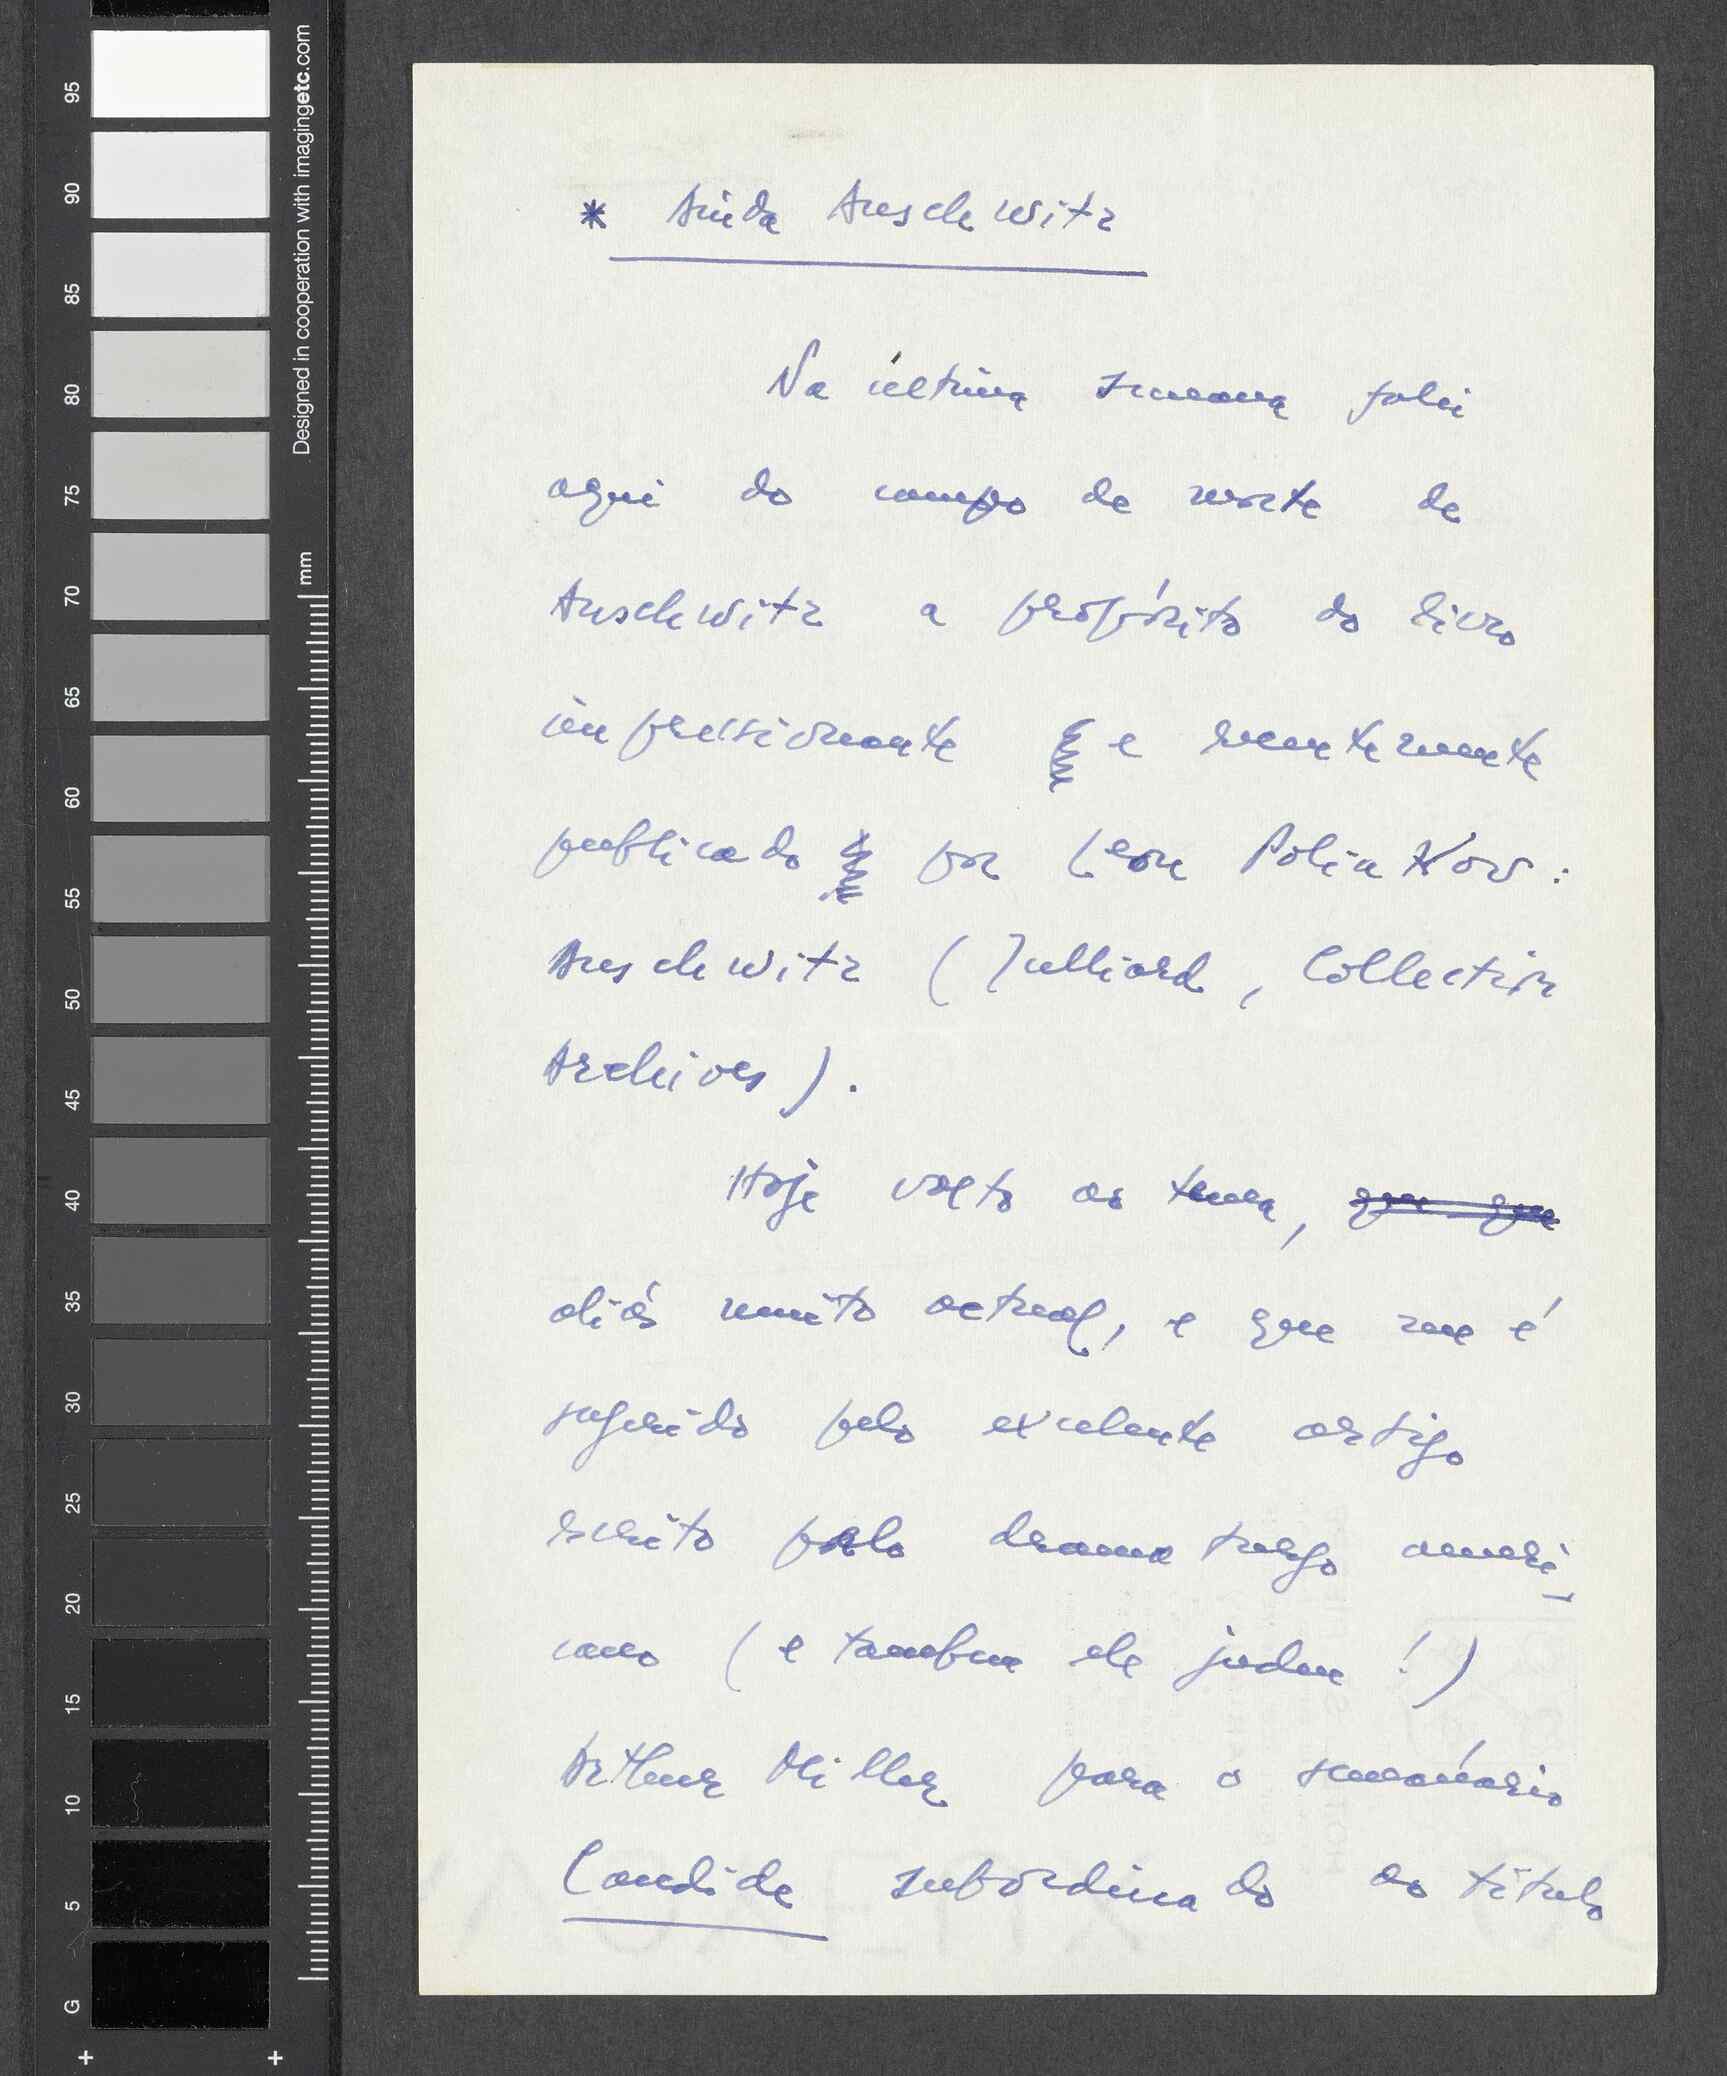 * Ainda Auschwitz
Na última semana falei
aqui do campo de morte de
Auschwitz a propósito do livro
impressionante e recentemente
publicado por Leon Poliakow:
Auschwitz (Julliard, Collection
Archives).
Hoje volto ao tema, que que
aliás muito actual, e que me é
sugerido pelo excelente artigo
escrito pelo dramaturgo ameri-
cano (e tambem ele judeu!)
Arthur Miller para o semanário
Candide subordinado ao título
Designed in cooperation with imagingetc.com
mm
95
90
85
80
75
70
65
60
55
50
45
40
35
30
25
20
15
10
5
G